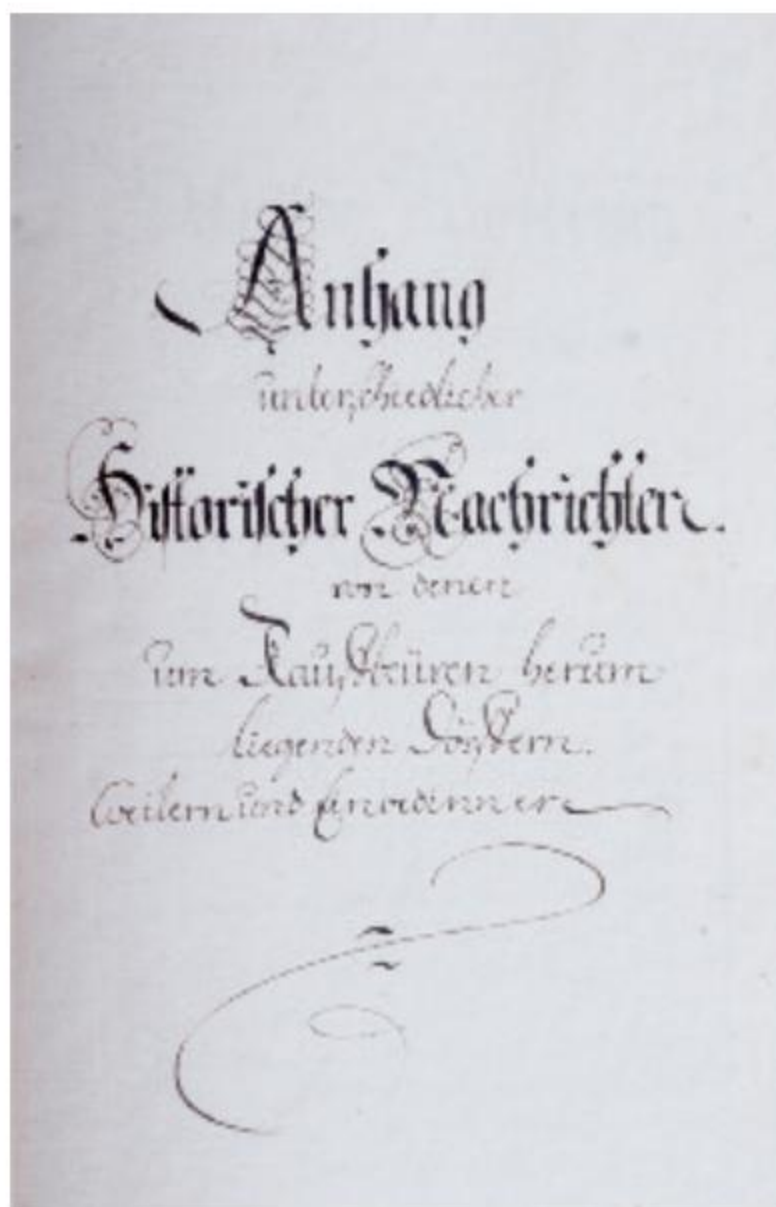 Anhang
unterschiedlicher
Historischer Nachrichten.
von denen
um Kauffbeüren herum
liegenden Dörffern.
Weilern und